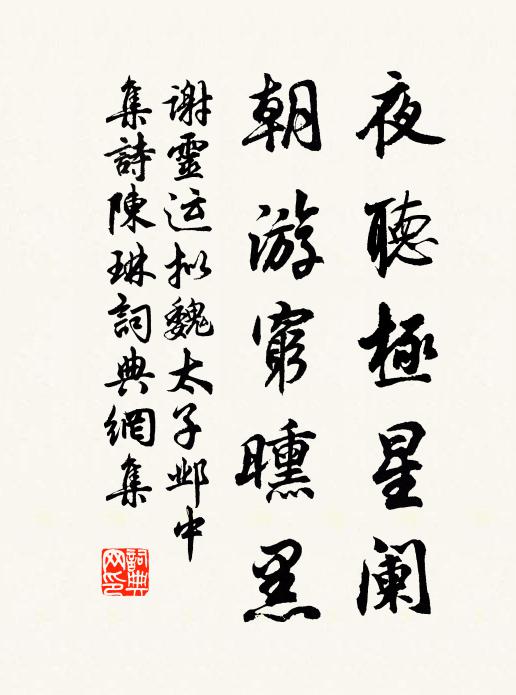 夜聽極星阑
朝游窮曛黑
谢靈运拟魏太子邺中
集詩陳琳詞典網集
詞典网印